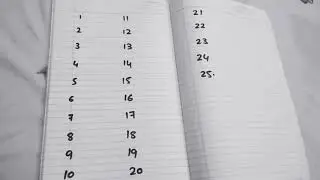 1
2
3
4
5
6
7
8
9
10
11
12
13
14
15
16
17
18
19
20
21
22
23
24
25.